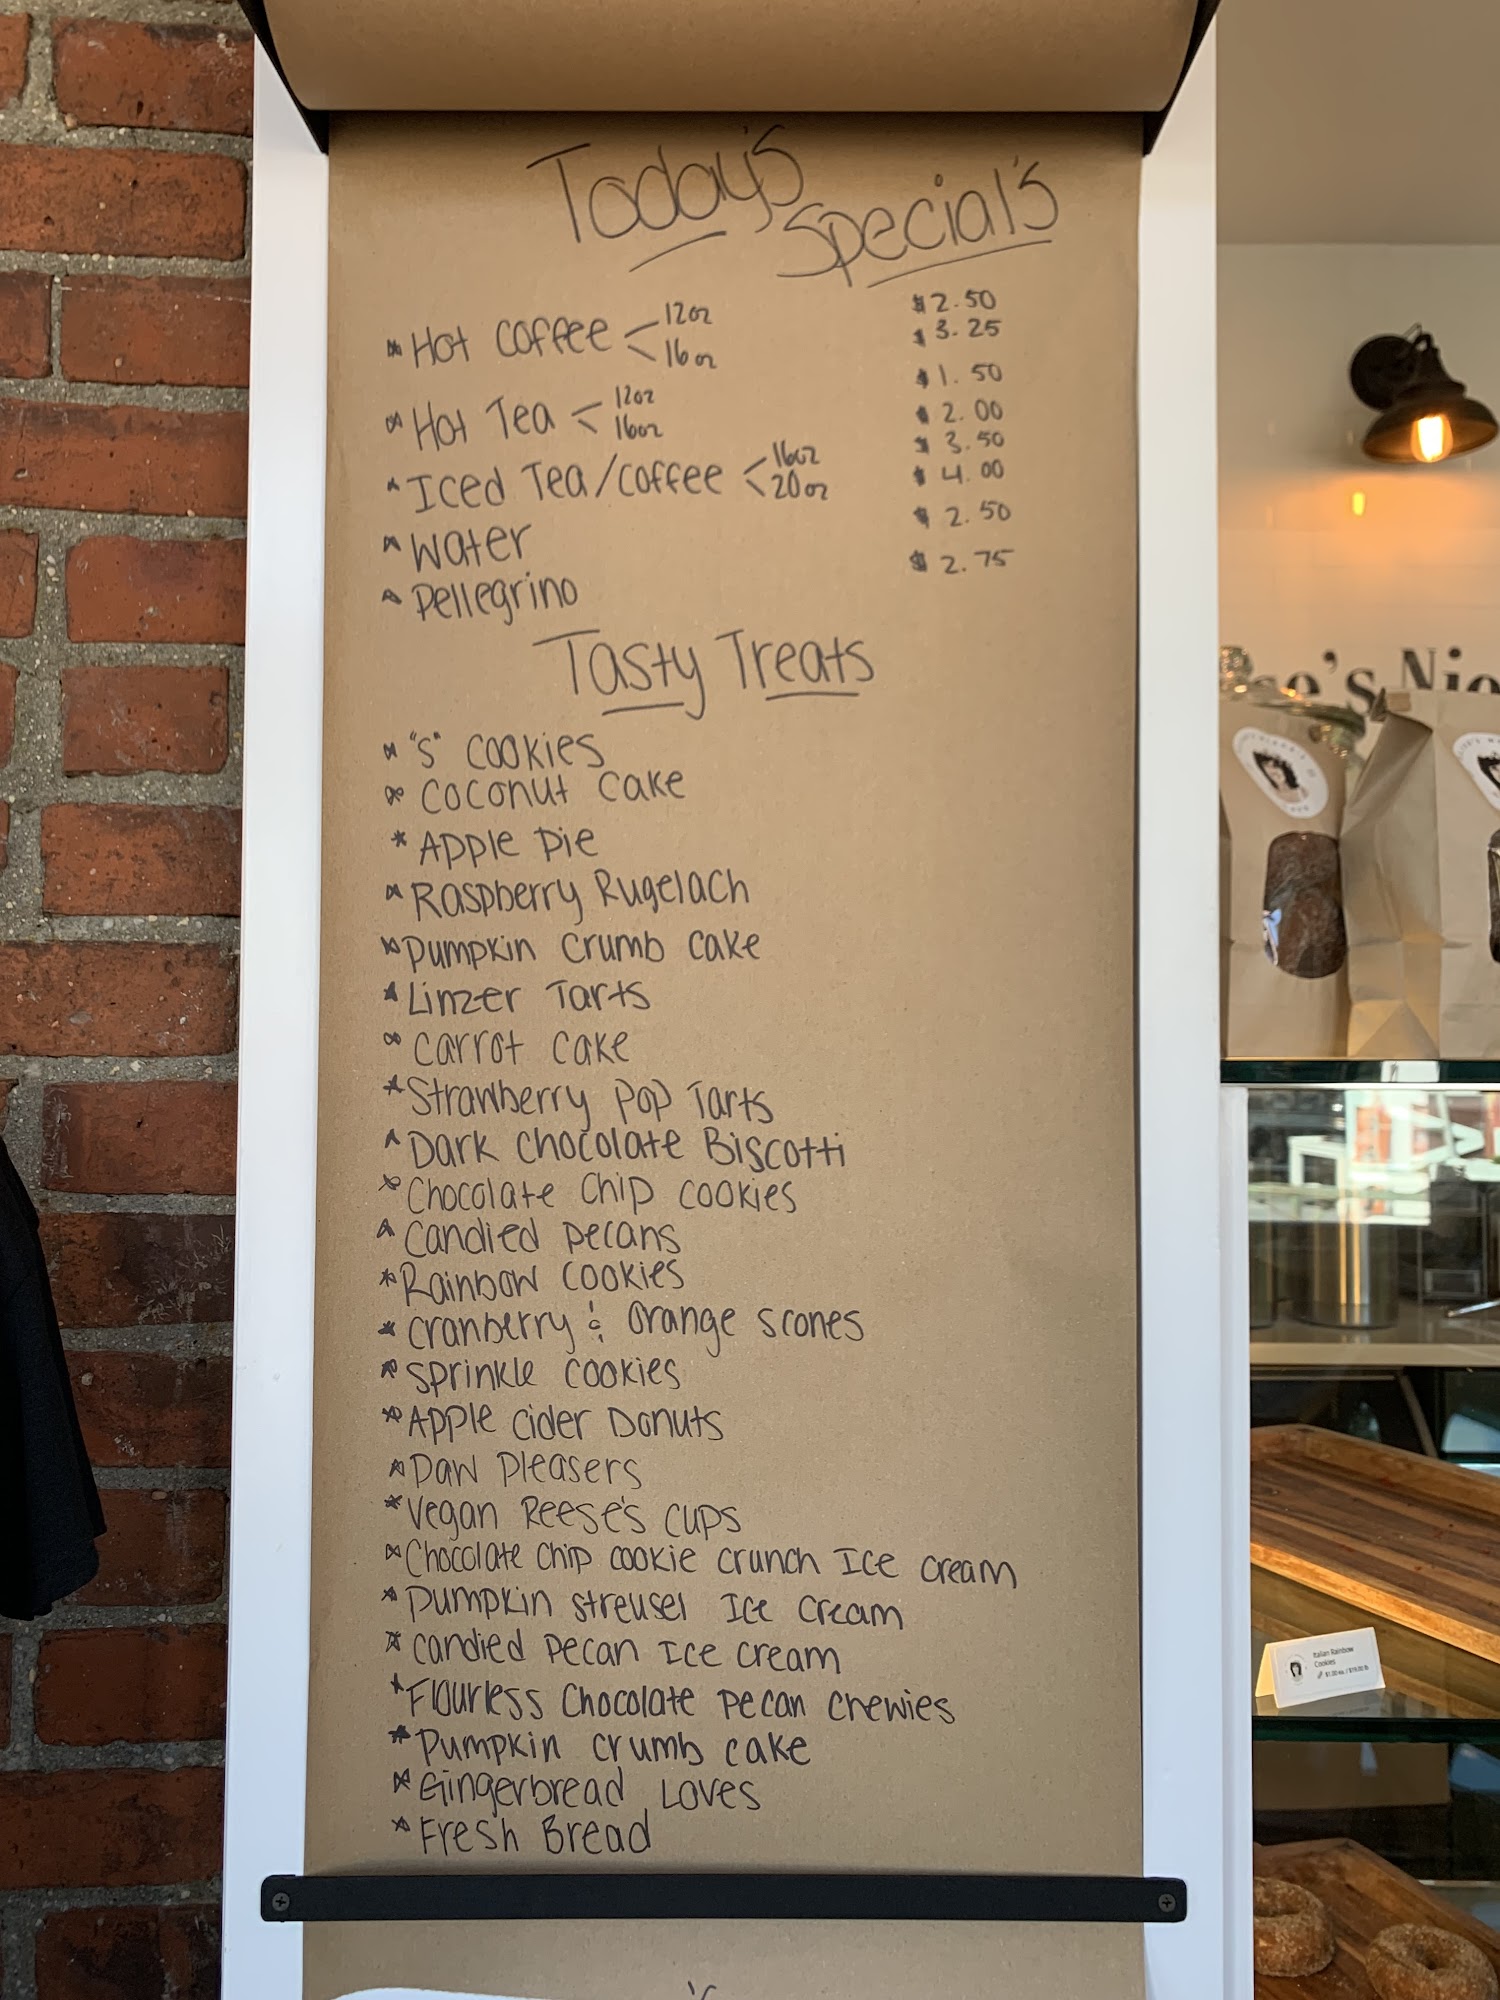 Today's
Special's
* Hot Coffee < 12oz $2.50
16oz $3.25
* Hot Tea < 12oz $1.50
16oz $2.00
* Iced Tea/Coffee < 16oz $3.50
20oz $4.00
* Water $2.50
* Pellegrino $2.75
Tasty Treats
* "S" Cookies
* Coconut Cake
* Apple Pie
* Raspberry Rugelach
* Pumpkin Crumb Cake
* Linzer Tarts
* Carrot Cake
* Strawberry Pop Tarts
* Dark Chocolate Biscotti
* Chocolate Chip Cookies
* Candied Pecans
* Rainbow Cookies
* Cranberry & Orange Scones
* Sprinkle Cookies
* Apple Cider Donuts
* Paw Pleasers
* Vegan Reese's Cups
* Chocolate Chip Cookie Crunch Ice Cream
* Pumpkin Streusel Ice Cream
* Candied Pecan Ice Cream
* Flourless Chocolate Pecan Chewies
* Pumpkin Crumb Cake
* Gingerbread Loves
* Fresh Bread
Italian Rainbow
Cookies